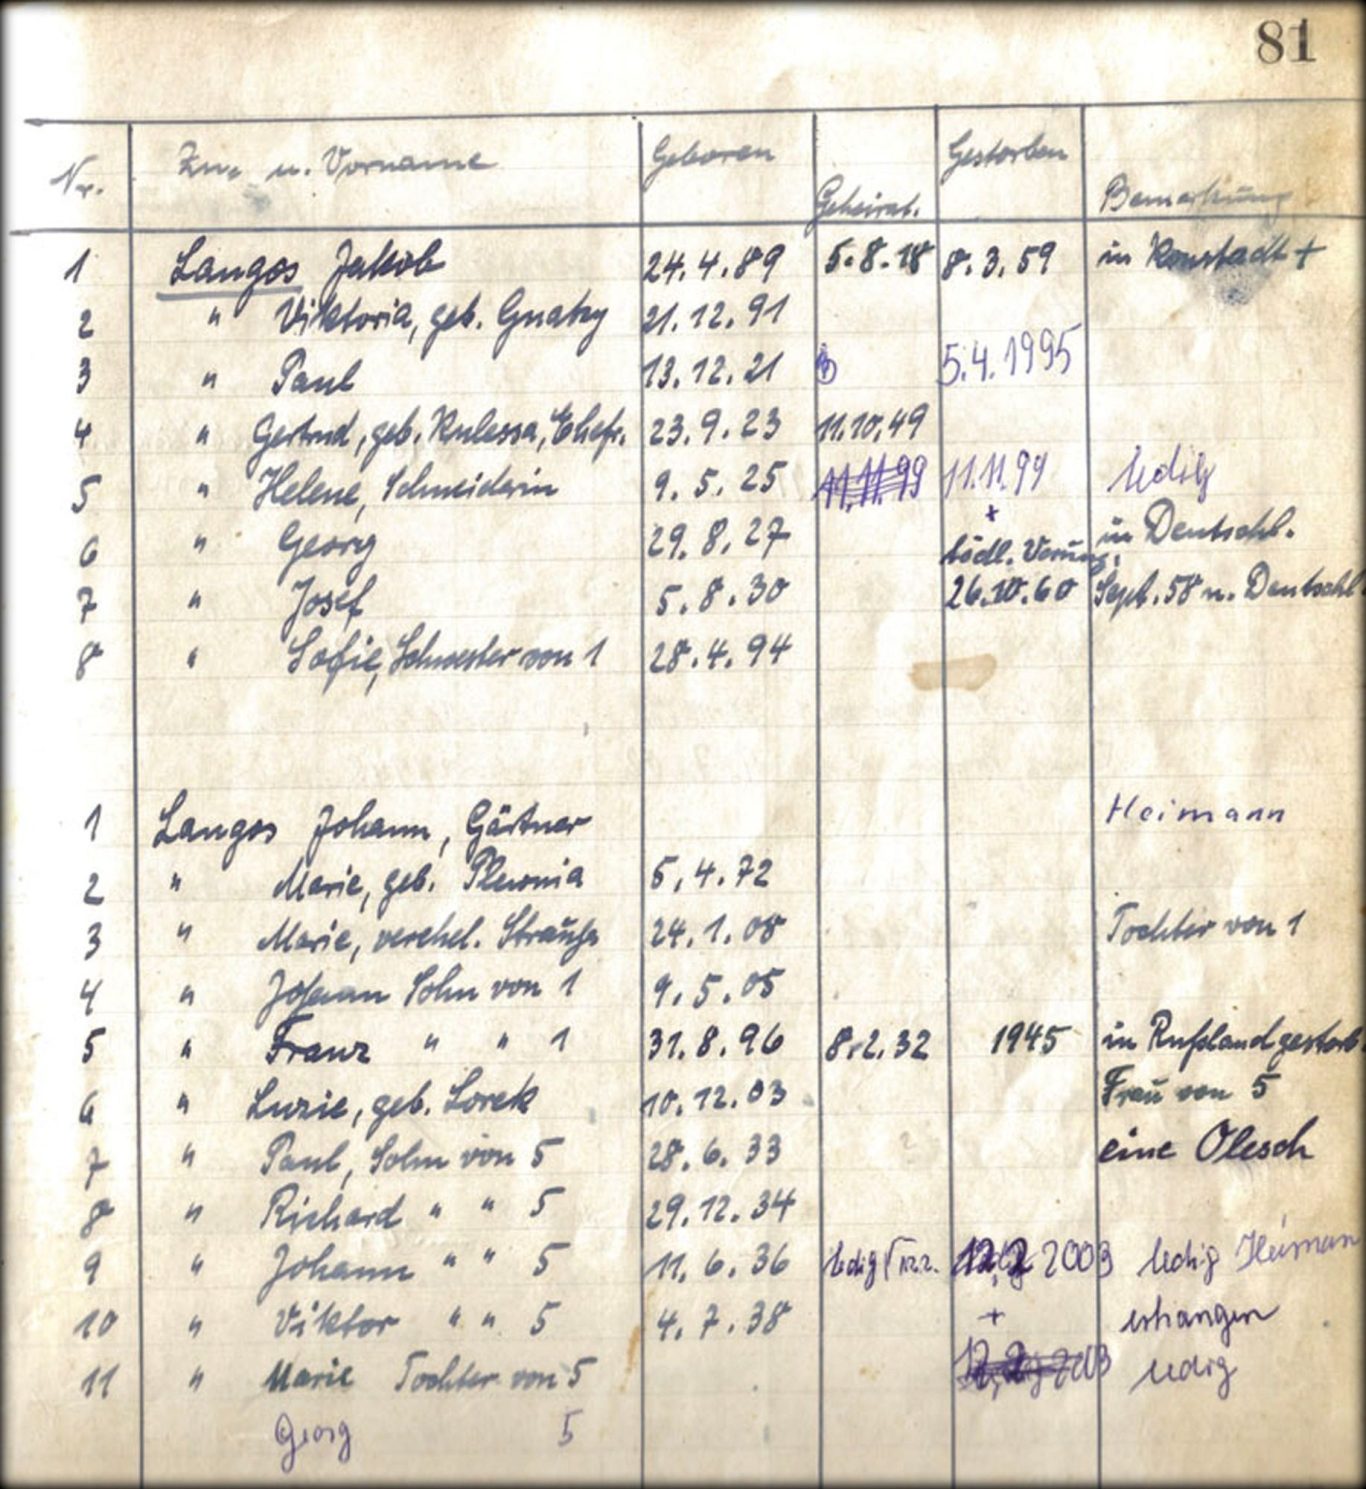 81
Nr. Zu- u. Vorname Geboren Geheirat. Gestorben Bemerkung
1 Langos Jakob 24.4.89 5.8.18 8.3.59 in Konstadt +
2 " Viktoria, geb. Gnatzy 21.12.91
3 " Paul 13.12.21 5.4.1995
4 " Gertrud, geb. Kulessa, Ehefr. 23.9.23 11.10.49
5 " Helene, Schneiderin 9.5.25 11.11.99 11.11.99 ledig
6 " Georg 29.8.27 + in Deutschl.
tödl. Verung.
7 " Josef 5.8.30 26.10.60 Sept. 58 n. Deutschl.
8 " Sofie, Schwester von 1 28.4.94
1 Langos Johann, Gärtner Heimann
2 " Marie, geb. Plewnia 5.4.72
3 " Marie, verehel. 24.1.08 Tochter von 1
4 " Johann Sohn von 1 9.5.05
5 " Franz " " 1 31.8.96 8.2.32 1945 in Rußland gestorb.
6 " Luzie, geb. Lorek 10.12.03 Frau von 5
7 " Paul, Sohn von 5 28.6.33 eine Olesch
8 " Richard " " 5 29.12.34
9 " Johann " " 5 11.6.36 ledig 12.2 2003 ledig Heimann
10 " Viktor " " 5 4.7.38 + erhangen
11 " Marie Tochter von 5 12.2.2003 ledig
Georg 5